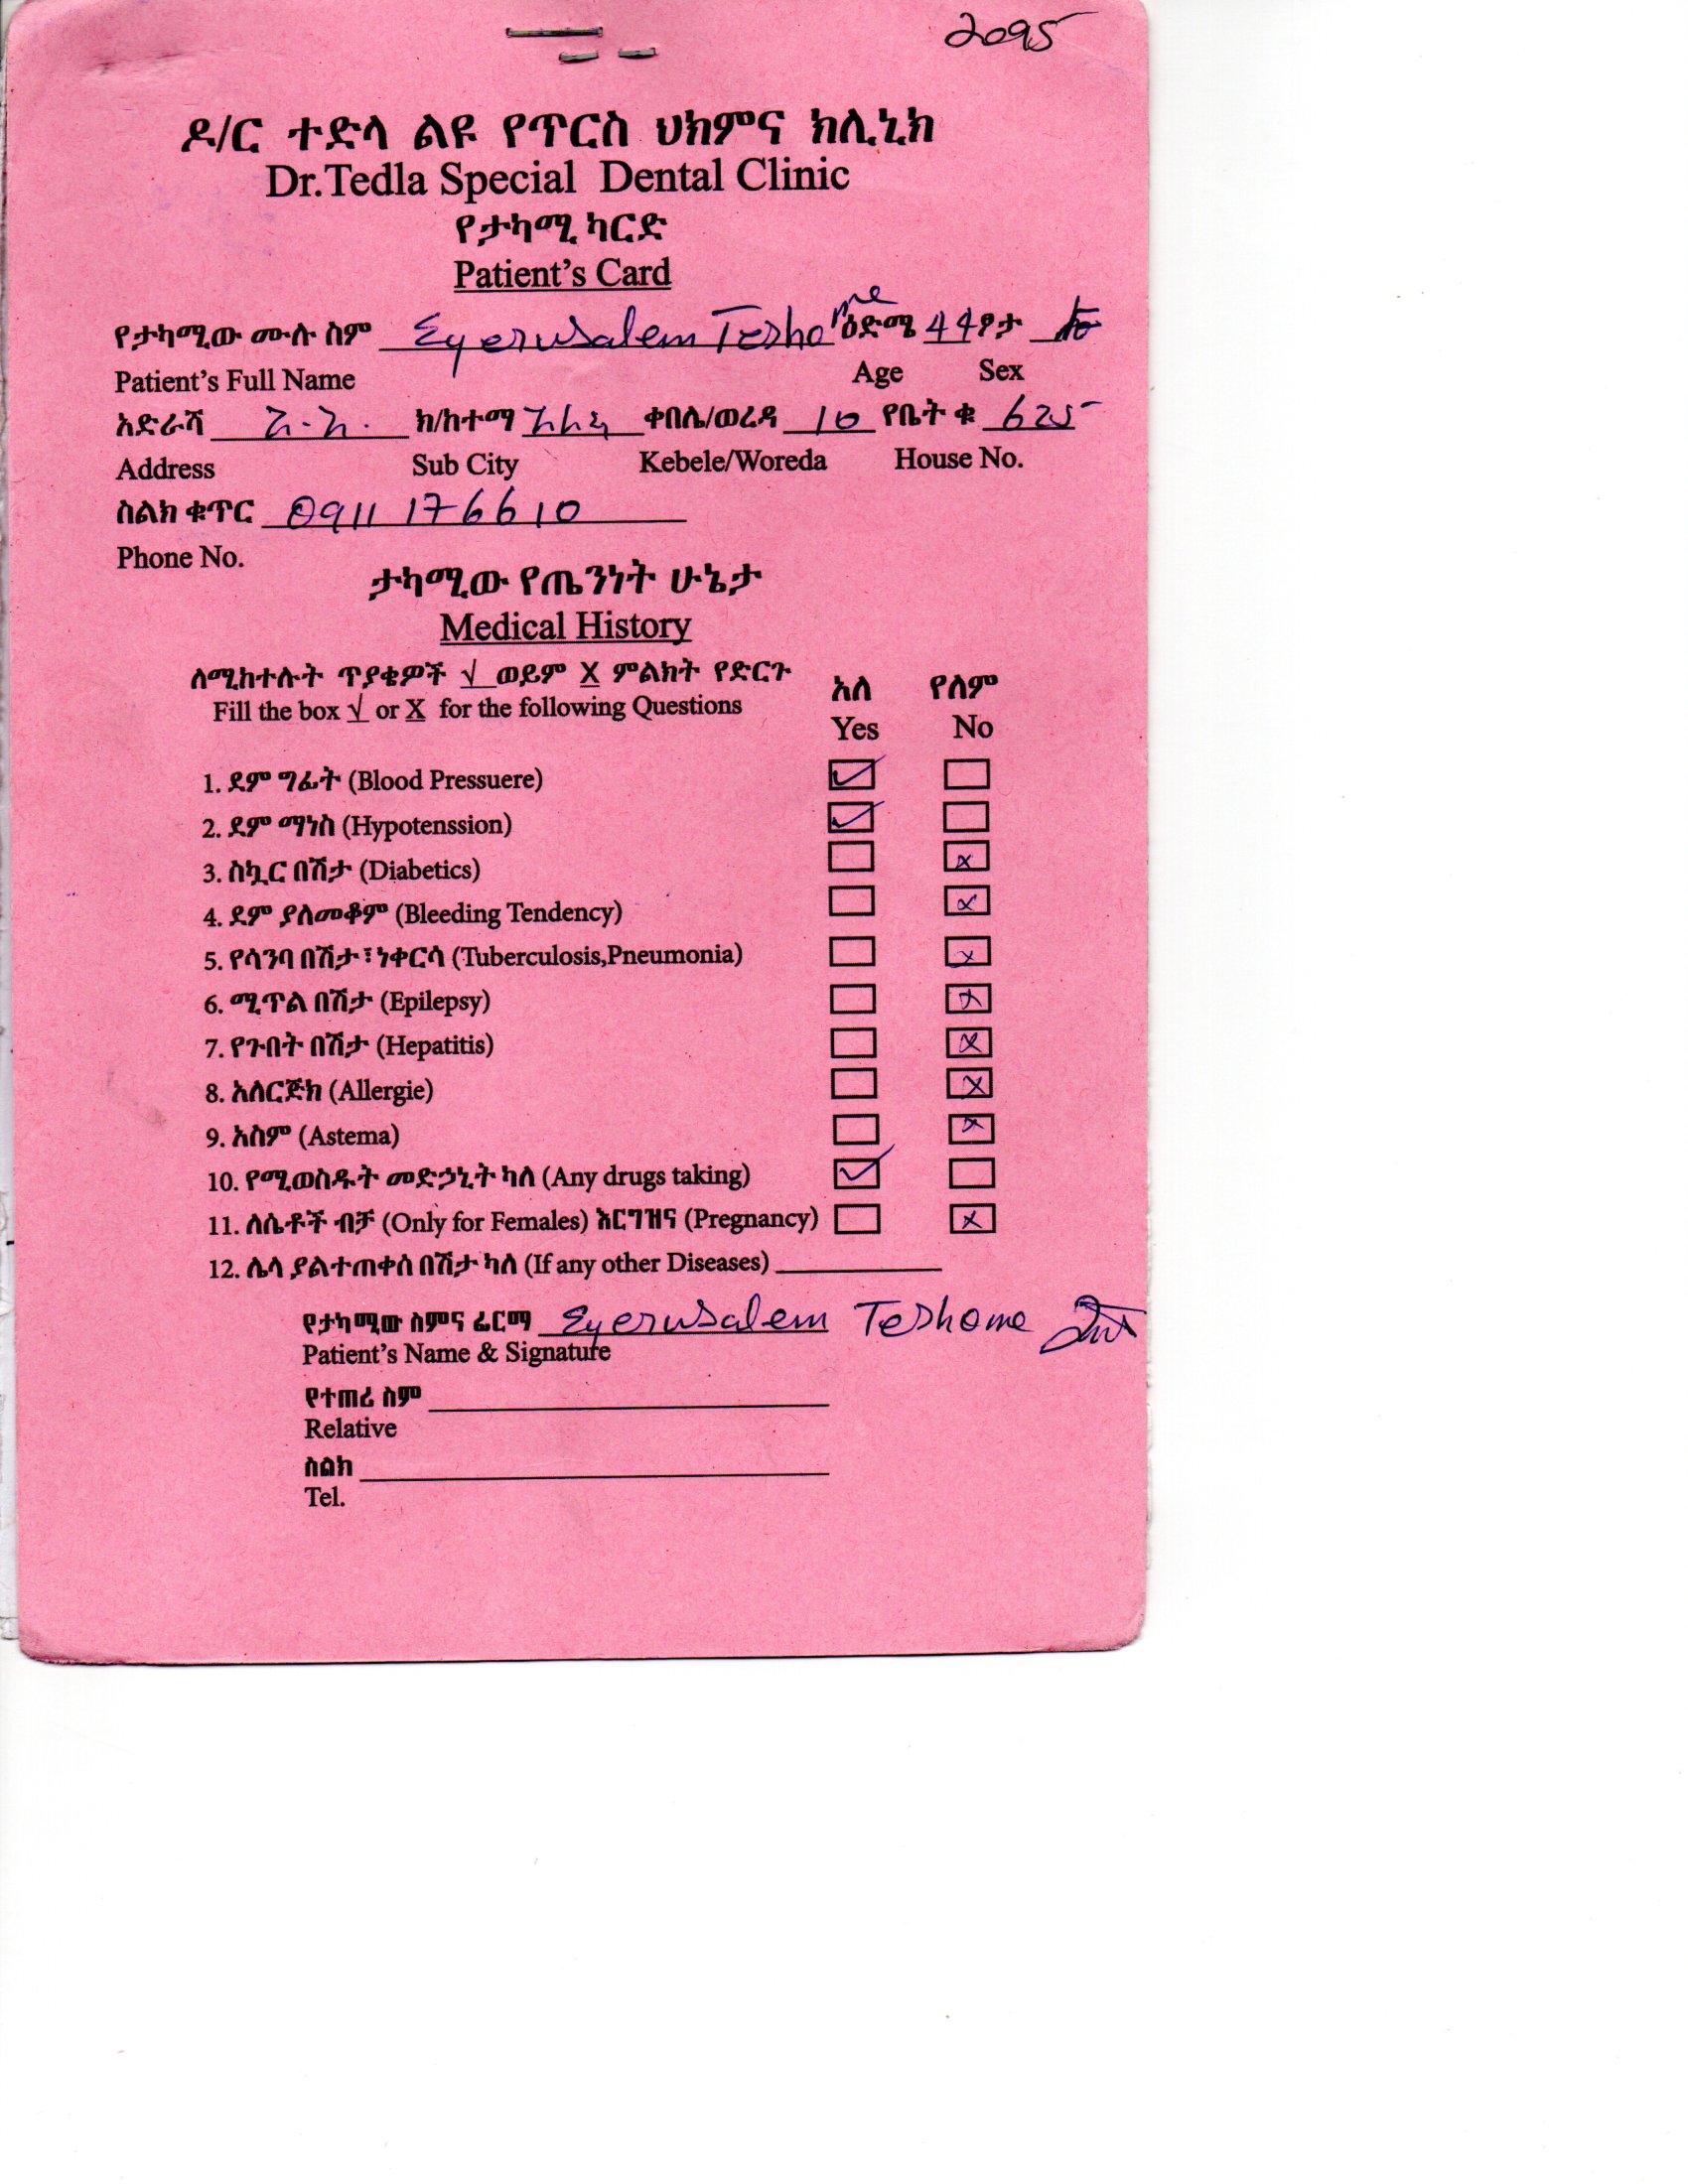 2095
ዶ/ር ተድላ ልዩ የጥርስ ህክምና ክሊኒክ
Dr.Tedla Special Dental Clinic
የታካሚ ካርድ
Patient's Card
የታካሚው ሙሉ ስም Eyerusalem Teshome ዕድሜ 44 ፆታ
Patient's Full Name Age Sex
አድራሻ አ.አ. ክ/ከተማ ቀበሌ/ወረዳ 10 የቤት ቁ 625
Address Sub City Kebele/Woreda House No.
ስልክ ቁጥር 0911 176610
Phone No.
ታካሚው የጤንነት ሁኔታ
Medical History
ለሚከተሉት ጥያቄዎች √ ወይም X ምልክት የድርጉ
Fill the box √ or X for the following Questions
አለ የለም
Yes No
1. ደም ግፊት (Blood Pressuere) ✓
2. ደም ማነስ (Hypotenssion) ✓
3. ስኳር በሽታ (Diabetics) x
4. ደም ያለመቆም (Bleeding Tendency) x
5. የሳንባ በሽታ፣ነቀርሳ (Tuberculosis,Pneumonia) x
6. ሚጥል በሽታ (Epilepsy) x
7. የጉበት በሽታ (Hepatitis) x
8. አለርጅክ (Allergie) x
9. አስም (Astema) x
10. የሚወስዱት መድኃኒት ካለ (Any drugs taking) ✓
11. ለሴቶች ብቻ (Only for Females) እርግዝና (Pregnancy) x
12. ሌላ ያልተጠቀሰ በሽታ ካለ (If any other Diseases)
የታካሚው ስምና ፊርማ Eyerusalem Teshome
Patient's Name & Signature
የተጠሪ ስም
Relative
ስልክ
Tel.